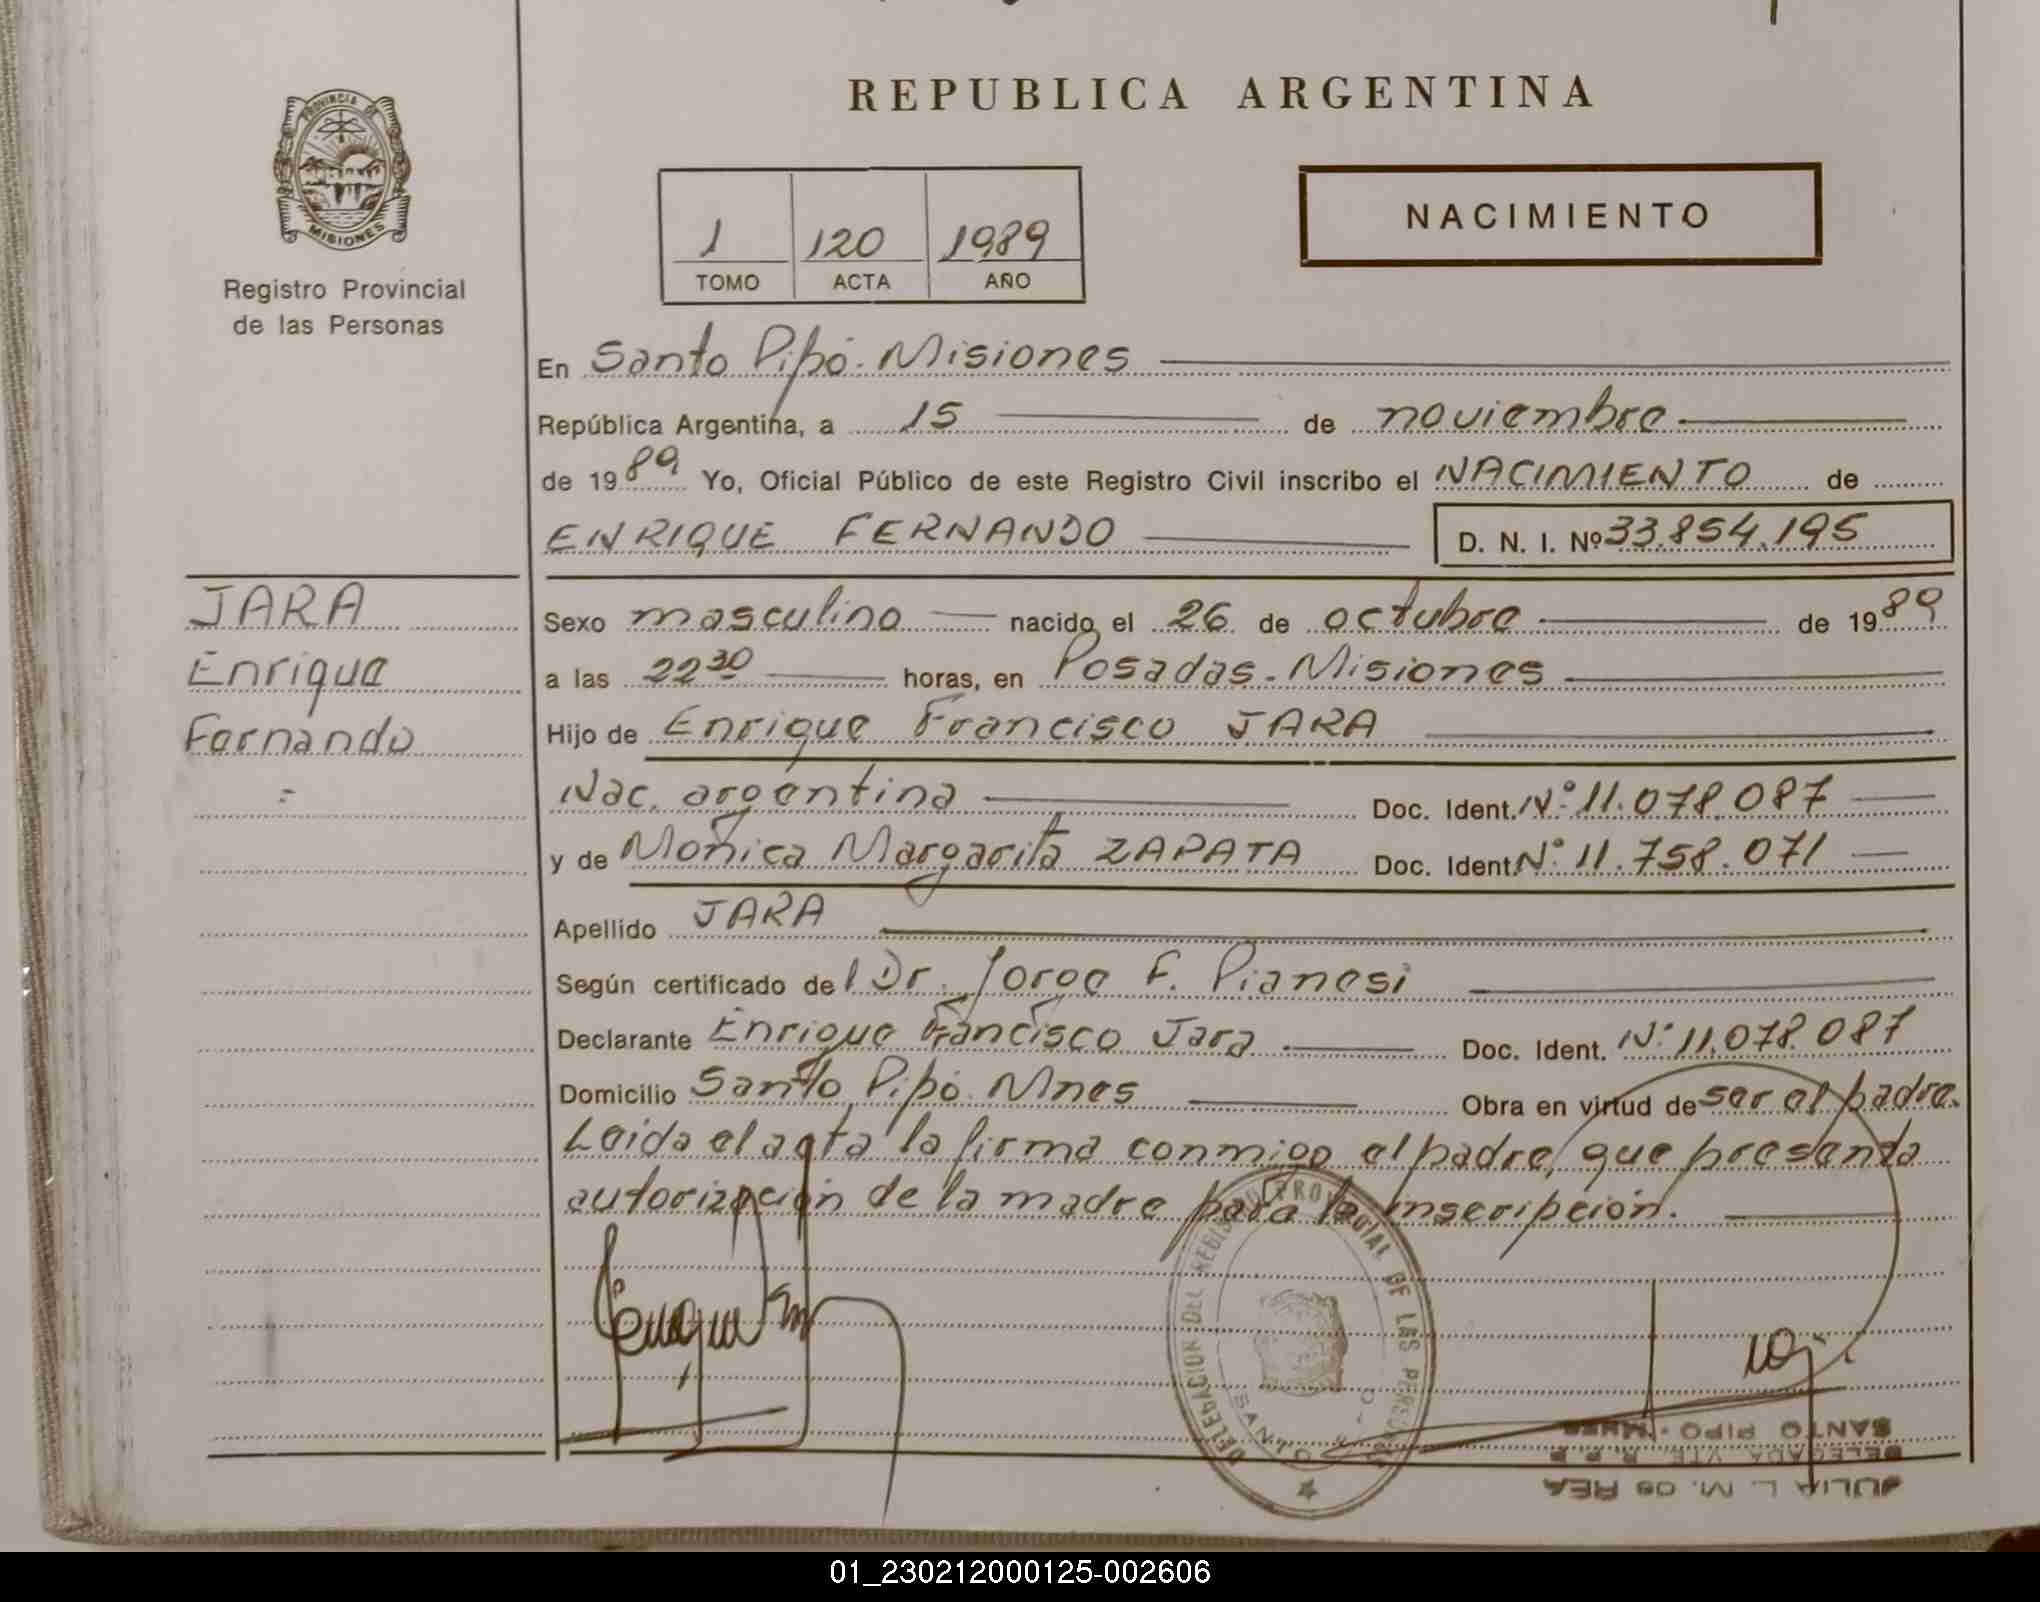 REPUBLICA ARGENTINA
PROVINCIA DE
MISIONES
Registro Provincial
de las Personas
1 120 1989
TOMO ACTA AÑO
NACIMIENTO
En Santo Pipó. Misiones
República Argentina, a 15 de noviembre
de 1989 Yo, Oficial Público de este Registro Civil inscribo el NACIMIENTO de
ENRIQUE FERNANDO D. N. I. Nº 33.854.195
JARA
Enrique
Fernando
Sexo masculino nacido el 26 de octubre de 1989
a las 22 30 horas, en Posadas - Misiones
Hijo de Enrique Francisco JARA
Nac. argentina Doc. Ident. Nº 11.078.087
y de Mónica Margarita ZAPATA Doc. Ident. Nº 11.758.071
Apellido JARA
Según certificado del Dr. Jorge F. Pianesi
Declarante Enrique Francisco Jara Doc. Ident. Nº 11.078.087
Domicilio Santo Pipó. Mnes Obra en virtud de ser el padre.
Leida el acta la firma conmigo el padre, que presenta
autorización de la madre para la inscripción.
DELEGACION DEL REGISTRO PROVINCIAL DE LAS PERSONAS
SANTO
JULIA L. M. de REA
DELEGADA VTE. R. P. P.
SANTO PIPO - MNES
01_230212000125-002606